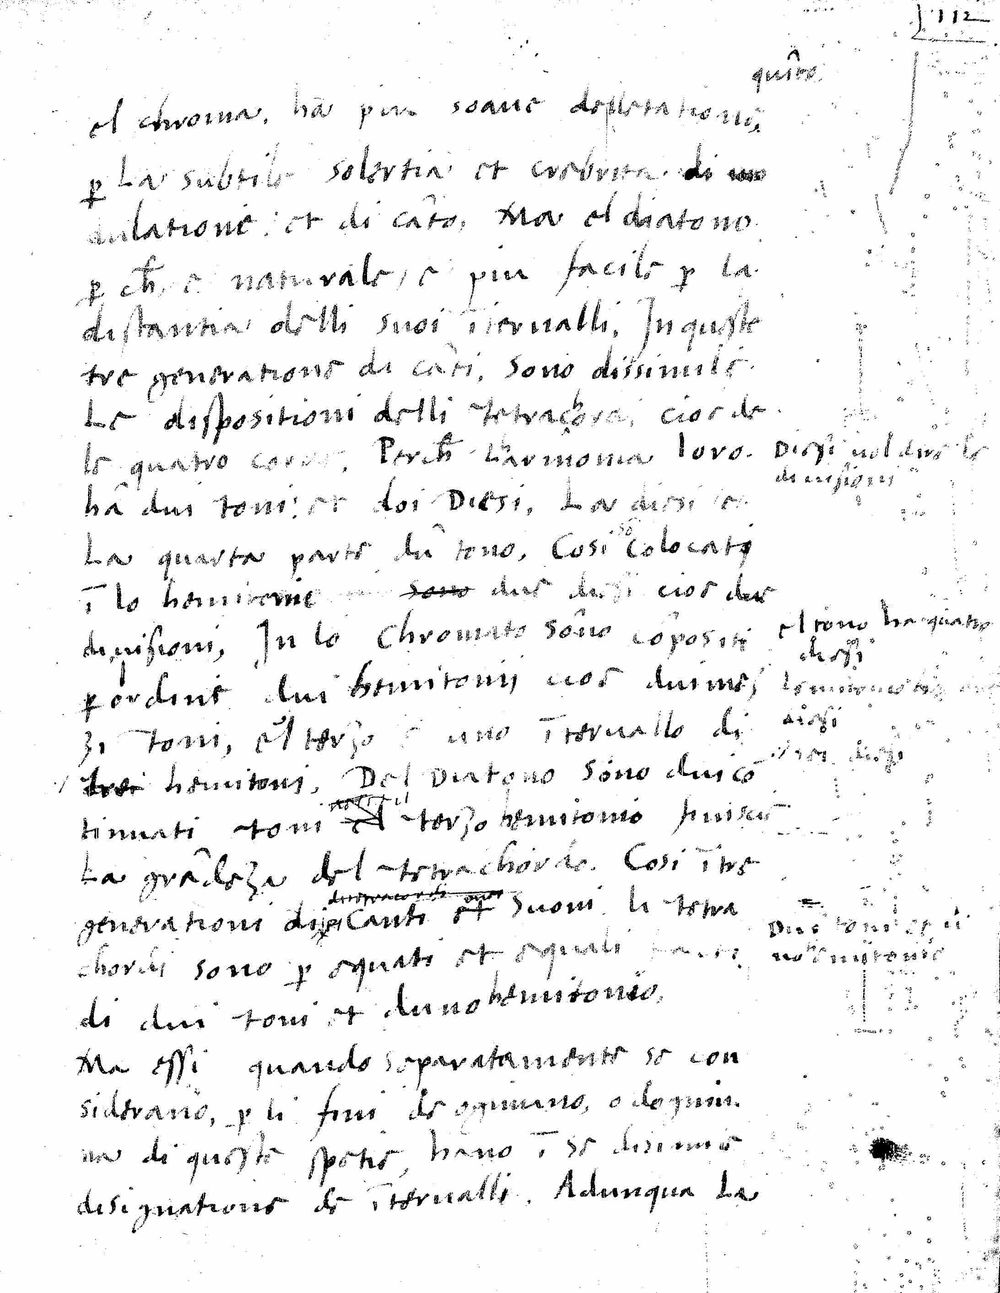 112
quĩto
el chroma, hã piu soaue delletationẽ,
ꝑ La subtile solertia et crebrita di mo
dulatione: et di cãto, Ma el diatono
ꝑ ch̃, e naturale, e piu facile ꝑ la
distantia delli suoi ĩterualli, In queste
tre generatione di cãti, sono dissimile
Le dispositioni delli tetrachordi, cioe de
le quatro corde, Perch̃ L'armonia loro
hã dui toni: et doi Diesi, La diesi e
La quarta parte dũ tono, Cosi sõ colocati
ĩ lo hemitonie sono due diesi cioe due
diuisioni, In lo Chromato sono cõpositi
ꝑ ordine dui hemitonij cioe dui mez
zi toni, el terzo e uno ĩteruallo di
trei hemitoni, Del Diatono sono dui cõ
tinuati toni el terzo hemitonio finisce
La grãdeza del tetrachordo. Cosi ĩ tre
generationi di Canti et Suoni li tetra
chordi sono ꝑ equati et equali
di dui toni et duno hemitonio,
Ma essi quando separatamente se con
siderano, ꝑ li fini de ogniuno, o dogniu
na di queste spetie, hano ĩ se disimile
designatione de ĩterualli. Adunqua La
Diesi uol dire le
diuisioni
el tono ha quatro
diesi
hemitonio
diesi
diesi
Dui toni et ũ
hemitonio